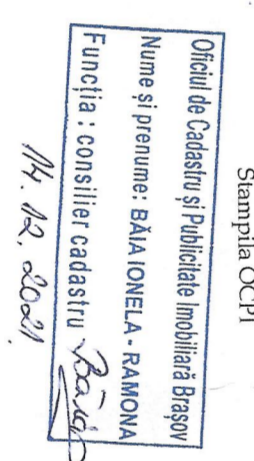 Stampila OCPI
Oficiul de Cadastru și Publicitate Imobiliară Brașov
Nume și prenume: BĂIA IONELA - RAMONA
Funcția : consilier cadastru Băia
14. 12. 2021.